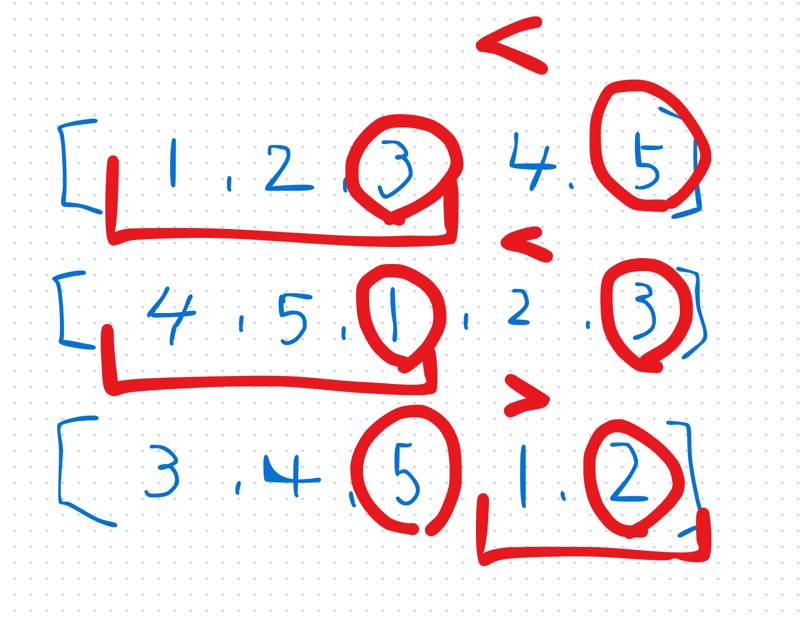 <
[ 1 , 2 , 3 4 . 5 ]
<
[ 4 , 5 , 1 , 2 . 3 ]
>
[ 3 , 4 , 5 1 . 2 ]